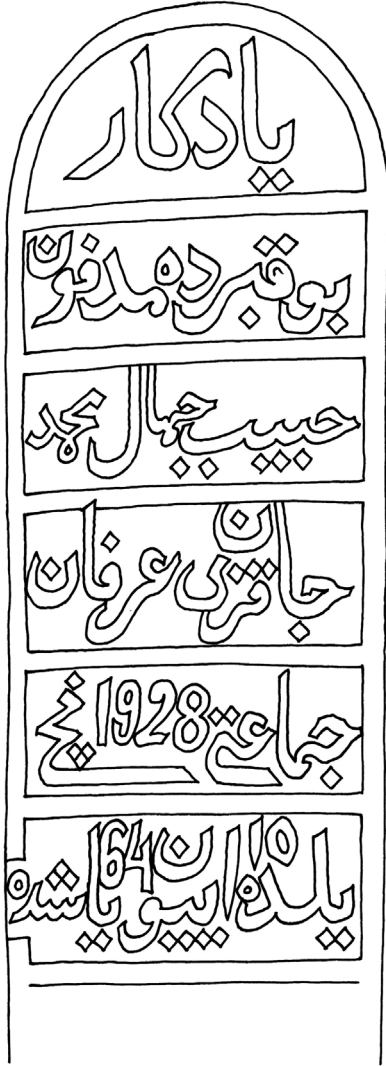 يادكار
بو قبرده مدفون
حبيب جمال محمد
جان قزى عرفان
جماعتى 1928 نچى
يلده 10 اييون 64 ياشده